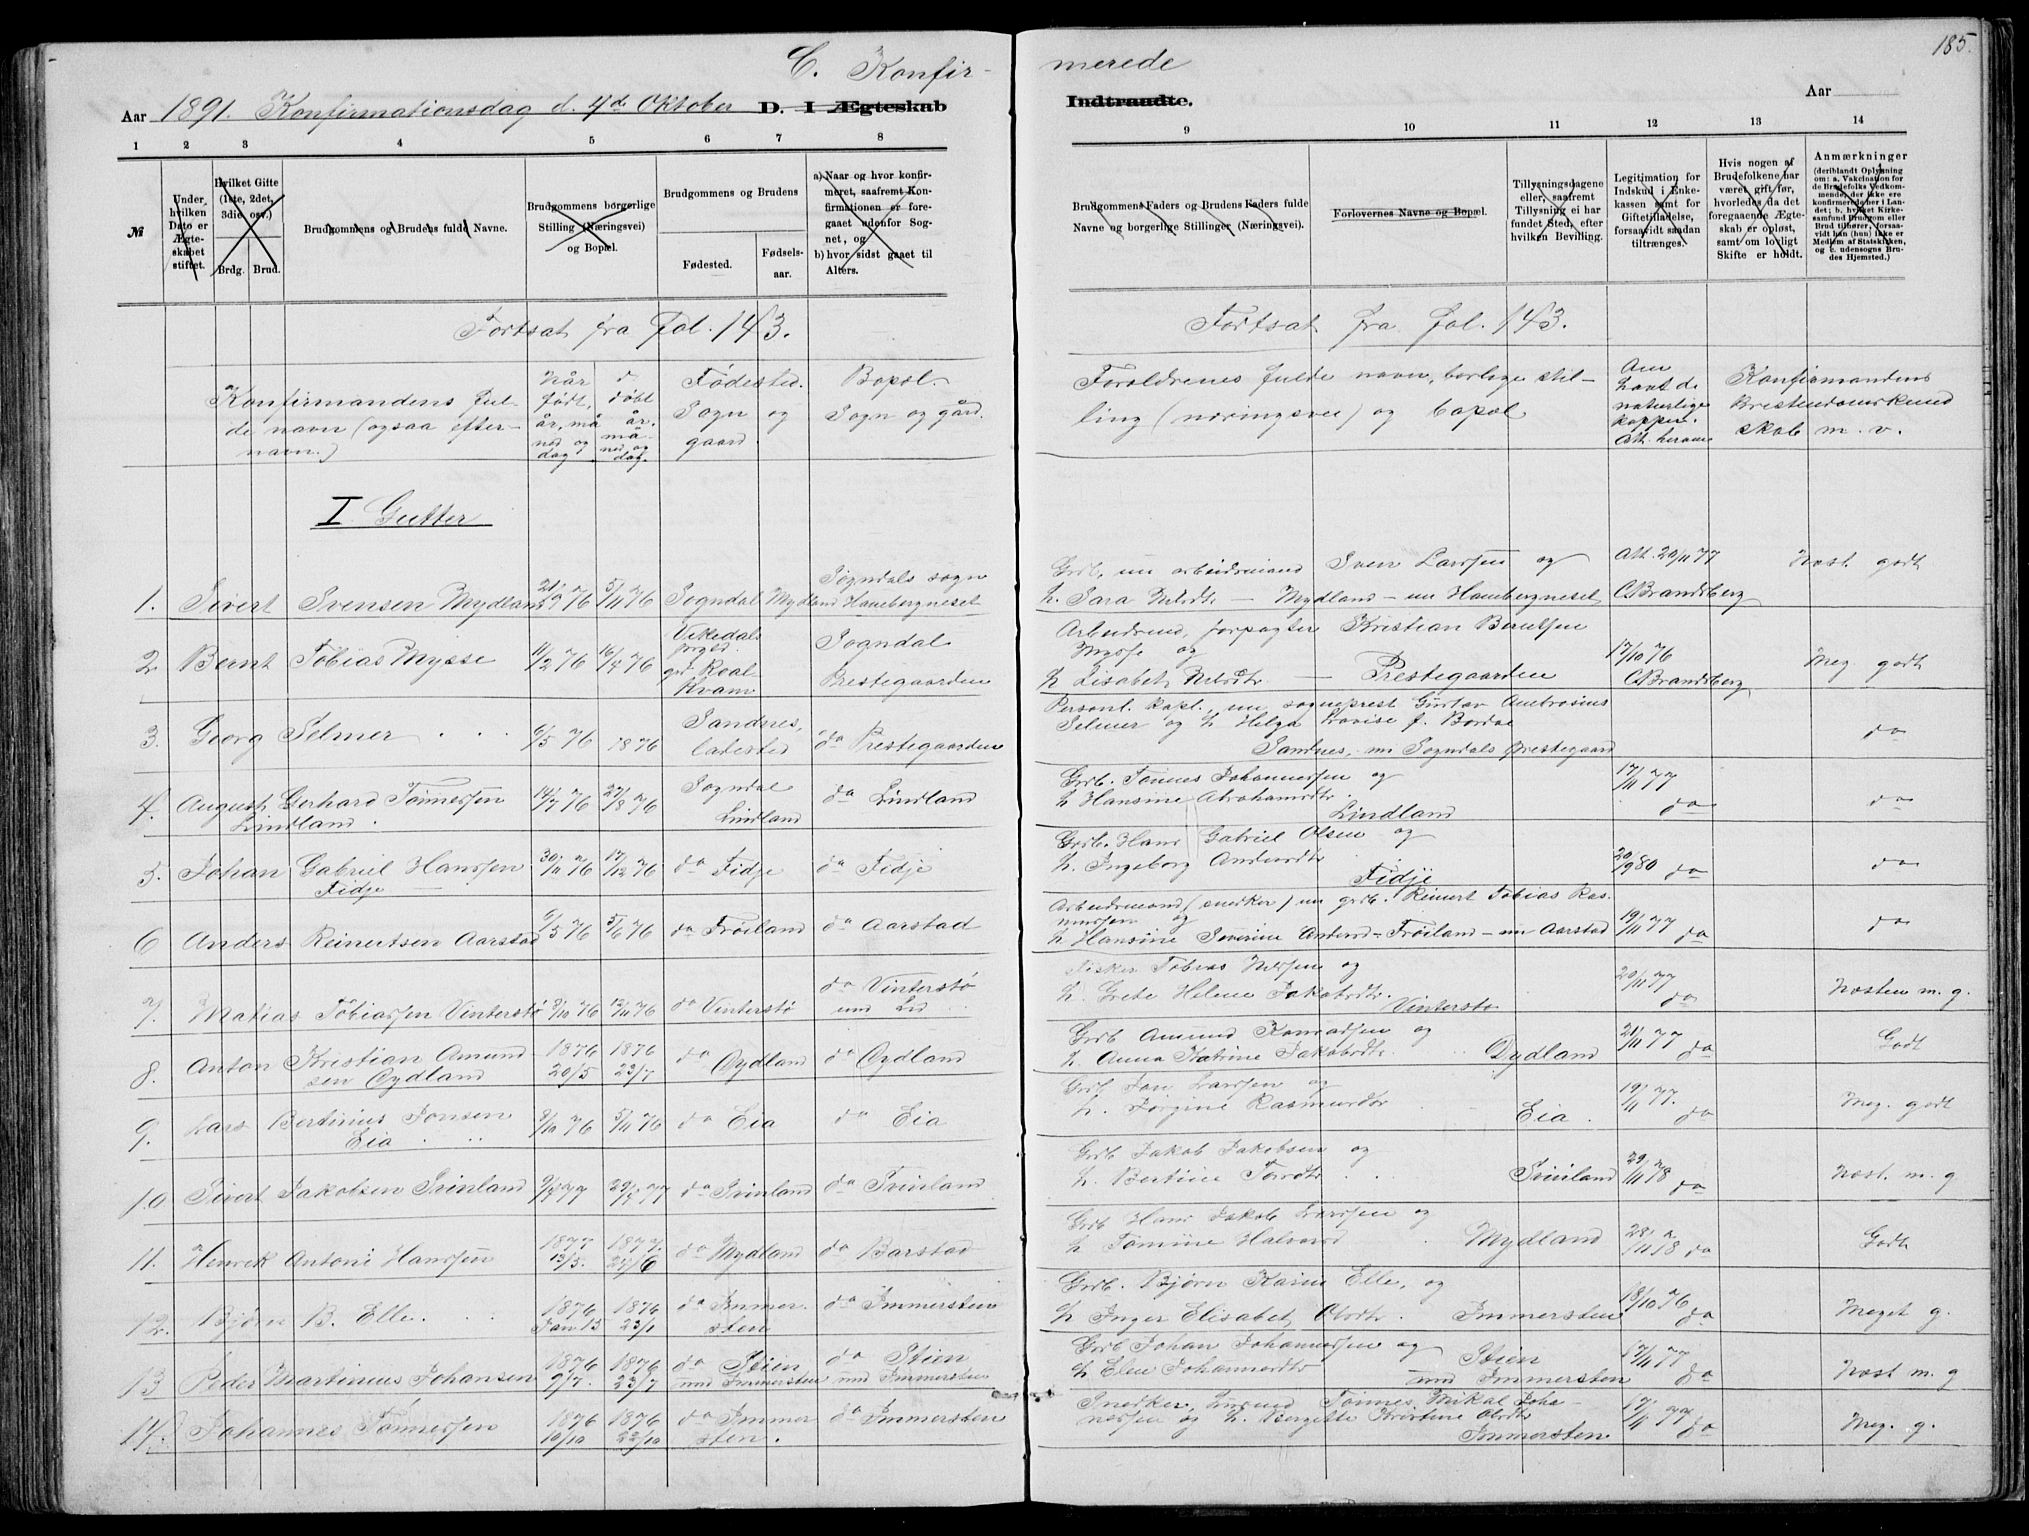 185.
C. Konfir-
merede
Aar 1891. Konfirmationsdag d. 4de Oktober D. I Ægteskab
Indtraadte.
Aar
1 2 3 4 5 6 7 8
9 10 11 12 13 14
№
Under hvilken Dato er Ægteskabet stiftet.
Hvilket Gifte (1ste, 2det, 3die osv.)
Brdg. Brud.
Brudgommens og Brudens fulde Navne.
Brudgommens borgerlige Stilling (Næringsvei) og Bopæl.
Brudgommens og Brudens
Fødested.
Fødselsaar.
a) Naar og hvor konfirmeret, saafremt Konfirmationen er foregaaet udenfor Sognet, og
b) hvor sidst gaaet til Alters.
Brudgommens Faders og Brudens Faders fulde Navne og borgerlige Stillinger (Næringsvei).
Forlovernes Navne og Bopæl.
Tillysningsdagene eller, saafremt Tillysning ei har fundet Sted, efter hvilken Bevilling.
Legitimation for Indskud i Enkekassen samt for Giftetilladelse, forsaavidt saadan tiltrænges.
Hvis nogen af Brudefolkene har været gift før, hvorledes da det foregaaende Ægteskab er opløst, samt om lovligt Skifte er holdt.
Anmærkninger
(deriblandt Oplysning om: a. Vakcination for de Brudefolks Vedkommende, der ikke ere konfirmerede her i Landet; b. hvilket Kirkesamfund Brudgom eller Brud tilhører, forsaavidt han (hun) ikke er Medlem af Statskirken, og c. udensogns Brudes Hjemsted.)
Fortsat fra fol. 143.
Fortsat fra fol. 143.
Konfirmandens fulde navn (ogsaa efternavn.)
Når født, år, måned og dag
d. døbt år. måned og dag.
Fødested. Sogn og gaard.
Bopæl. Sogn og gård.
Forældrenes fulde navn, borlige stilling (næringsvei) og bopæl
Om havt de naturlige kopper. Att. herom
Konfirmandens kristendomskundskab m. v.
I Gutter
1. Sivert Svensen Mydland 21/9 76 5/11 76 Sogndal Mydland Sogndals sogn Hanebergneset
Grdb, nu arbeidsmand Sven Larssen og
h. Sara Nilsdtr — Mydland — nu Hanebergneset Att. 20/11 77 C. Brandsberg Næst godt
2. Bernt Tobias Mysse 11/2 76 16/4 76 Vikedals prgld. grd Roalkvam Sogndal Prestegaarden
Arbeidsmd, forpagter Kristian Berntsen
Mysse og
h Lisabet Nilsdtr. — Prestegaarden 17/10 76 C. Brandsberg Meg godt
3. Georg Selmer 6/5 76 18 76 Sandnes, ladested do Prestegaarden
Personl. kapl., nu sogneprest Gustav Ambrosius
Selmer og h Helga Lovise f. Bordoe
Sandnes, nu Sogndals prestegaard do
4. August Gerhard Tønnessen Lindland. 14/7 76 27/8 76 Sogndal Lindland do Lindland
Grdb. Tønnes Johannessen og
h Hansine Abrahamsdtr. Lindland 17/11 77 do do
5. Johan Gabriel Hanssen Fidje 30/11 76 17/12 76 do Fidje do Fidje
Grdb. Hans Gabriel Olsen og
h. Ingeborg Andersdtr Fidje 20/9 80 do do
6 Anders Reinertsen Aarstad 6/5 76 5/6 76 do Frøiland do Aarstad
Arbeidsmand (snedker) nu grdb. Reinert Tobias Rasmussen og
h Hansine Severine Andersd - Frøiland - nu Aarstad 19/11 77 do do
7. Matias Tobiassen Vinterstø 8/10 76 12/11 76 do Vinterstø do Vinterstø und Lid
Fisker Tobias Nilssen og
h. Grete Helene Jakobsdtr. Vinterstø 20/11 77 do Næsten m. g.
8. Anton Kristian Amundsen Øydland 1876 20/5 1876 23/7 do Øydland do Øydland
Grdb Amund Konradsen og
h. Anna Katrine Jakobsdtr. Øydland 21/11 77 do Godt
9. Lars Bertinius Jonsen Eia 8/10 76 5/11 76 do Eia do Eia
Grdb Jon Larssen og
h. Jørgine Rasmusdtr Eia. 19/11 77. do Meg. godt
10 Sivert Jakobsen Svinland 9/4 77 29/4 77 do Svinland do Svinland
Grdb Jakob Jakobsen og
h. Bertine Tordtr. Svinland 29/11 78 do Næst. m. g
11. Henrik Antoni Hanssen 1877 13/5. 1877. 24/6 do Mydland do Barstad
Grdb Hans Jakob Larssen og
h Tomine Halvorsd Mydland 28/11 78 do Godt
12. Bjørn B. Elle. 1876 Jan 13 1876 23/1 do Immersten do Immersten
Grdb. Bjørn Kasin Elle, og
h Inger Elisabet Olsdtr. Immersten 18/10 76 do Meget g.
13 Peder Martinius Johansen 1876 9/7. 1876 23/7 do Stien und Immersten do Stien und Immersten
Grdb Johan Johannessen og
h Elen Johannesdtr Stien und Immersten 17/11 77 do Næst m. g
14. Johannes Tønnessen 1876 10/10 1876 22/10 do Immersten. do Immersten
Snedker, husmd Tønnes Mikal Johanessen og h. Bergitte Kristine Olsdtr
Immersten 17/11 77 do Meg. g.